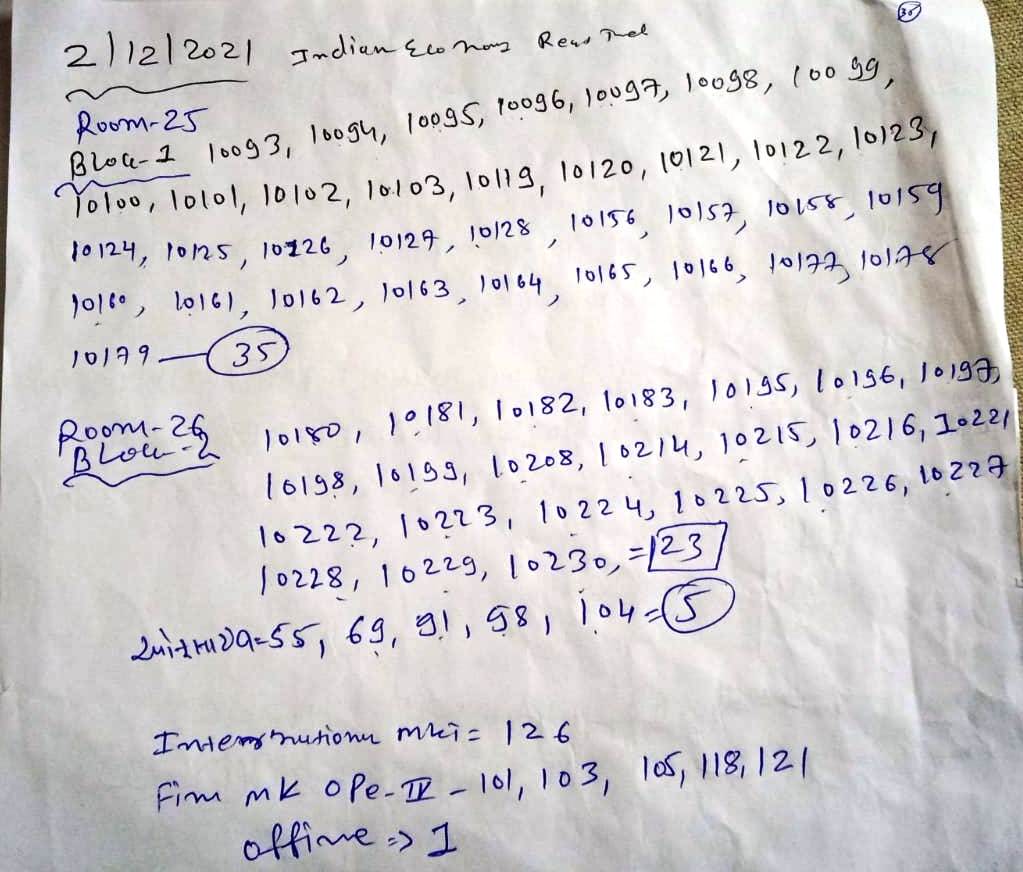 30
2/12/2021 Indian Economy
Room-25
Block-1 10093, 10094, 10095, 10096, 10097, 10098, 10099,
10100, 10101, 10102, 10103, 10119, 10120, 10121, 10122, 10123,
10124, 10125, 10126, 10127, 10128, 10156, 10157, 10158, 10159
10160, 10161, 10162, 10163, 10164, 10165, 10166, 10177, 10178
10179 — 35
Room-26
Block-2 10180, 10181, 10182, 10183, 10195, 10196, 10197,
10198, 10199, 10208, 10214, 10215, 10216, 10221
10222, 10223, 10224, 10225, 10226, 10227
10228, 10229, 10230, = 23
=55, 69, 91, 98, 104 = 5
= 126
mk ope-IV - 101, 103, 105, 118, 121
offine => 1